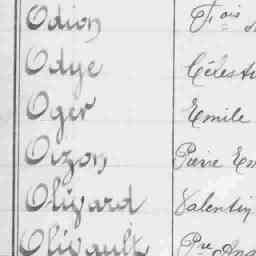 Odion Fr.ois
Odye Célesti
Oger Emile
Oizon Pierre Em
Oligard Valentin
Olivault Pre Ang